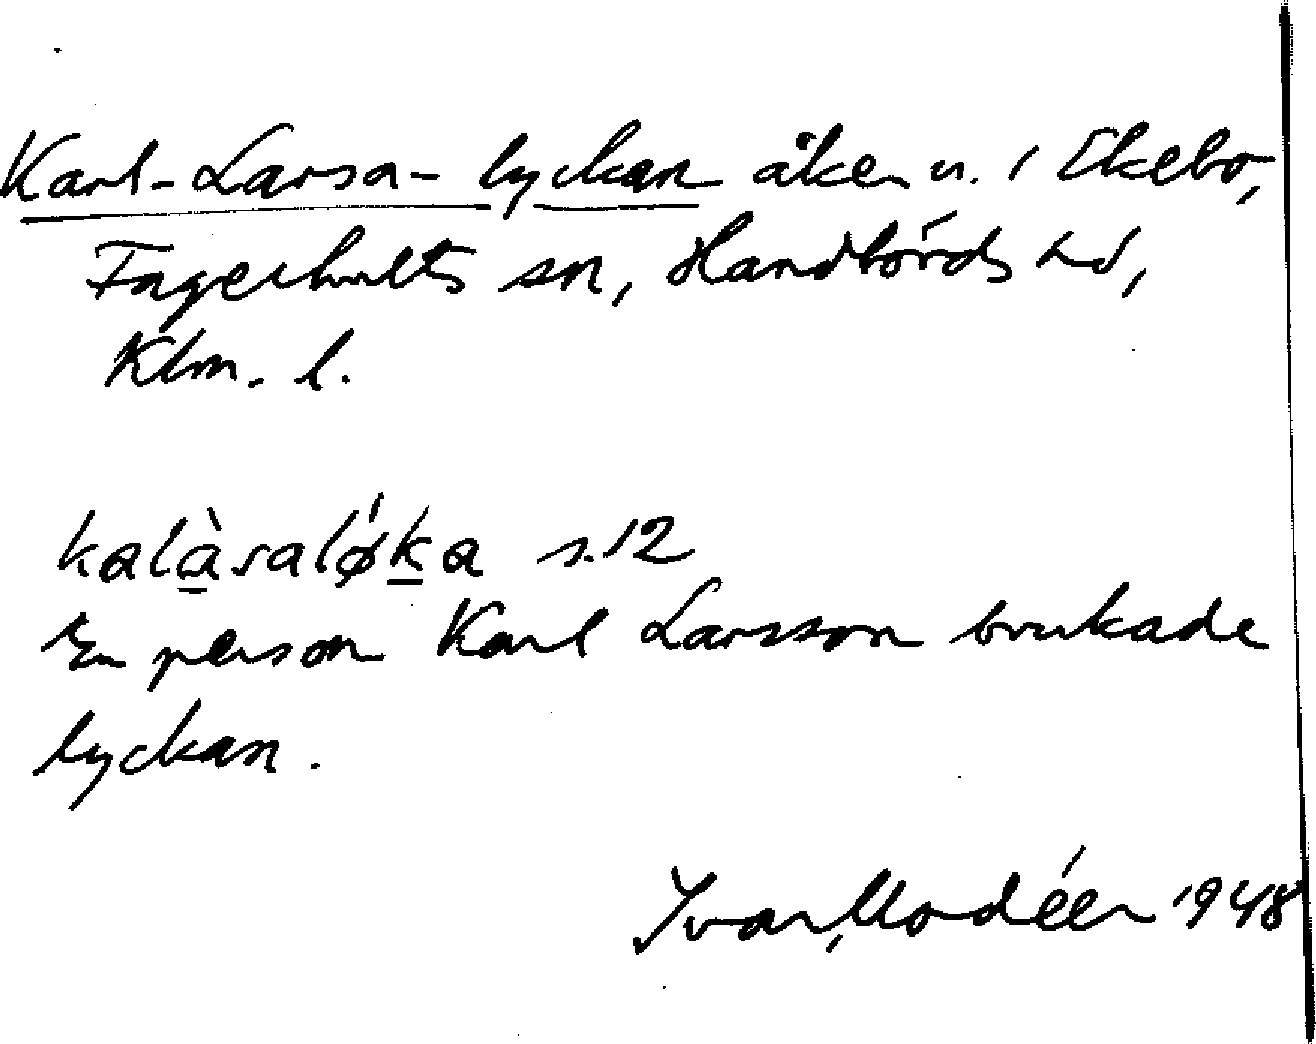 Karl-Larsa-lyckan åker n. i Ekebo,
Fagerhults sn, Handbörds hd,
Klm. l.
kalàsaløka s.12
En person Karl Larsson brukade
lyckan.
Ivar Modéer 1948